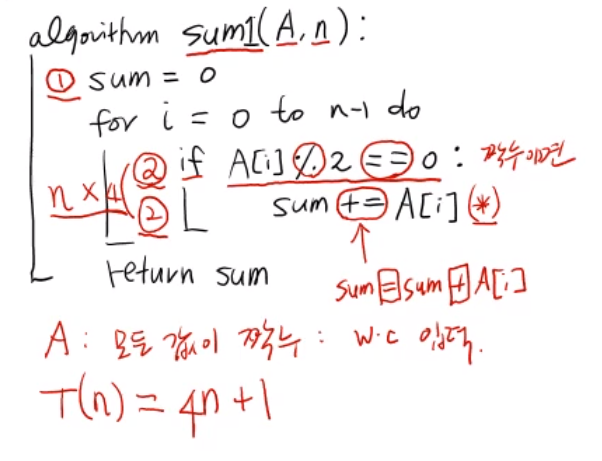 algorithm sum1(A, n):
① sum = 0
for i = 0 to n-1 do
n × 4( ② if A[i] % 2 == 0 : 짝수이면
② sum += A[i] (*)
↑
return sum
sum = sum + A[i]
A : 모든 값이 짝수 : w.c 입력.
T(n) = 4n + 1